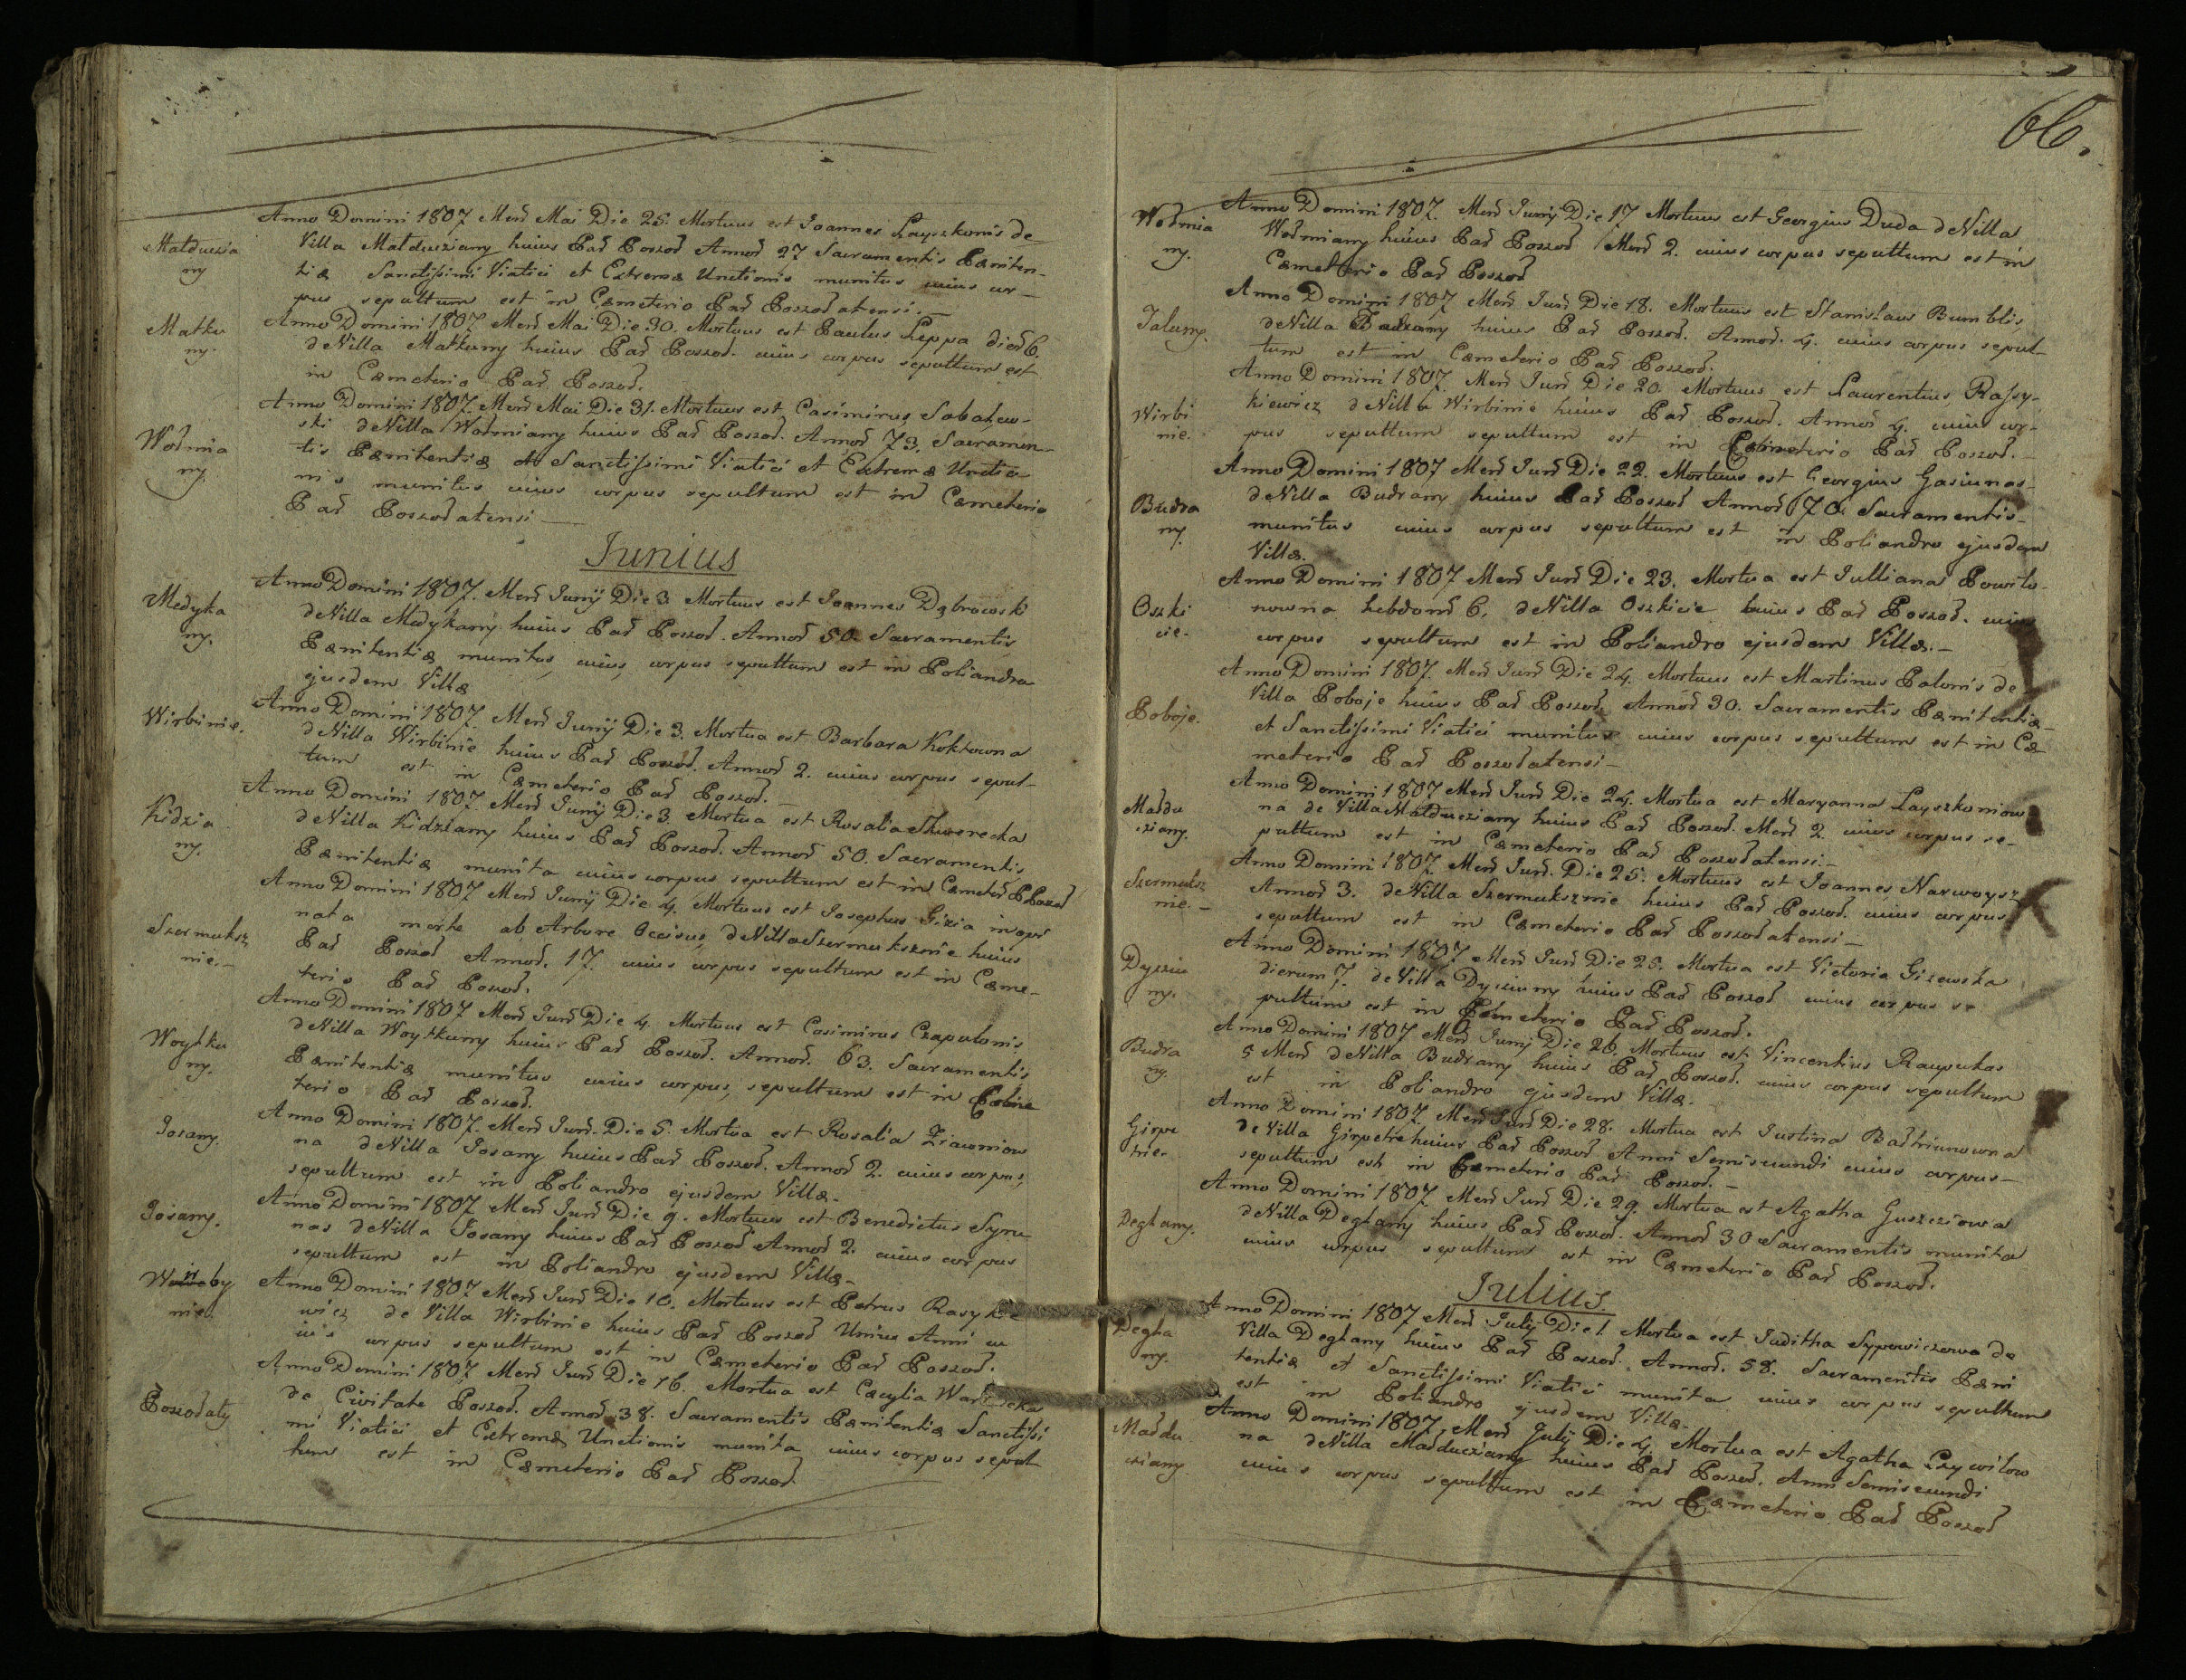 Anno Domini 1807 Mens Mai Die 25. Mortuus est Joannes Layszkunis de
Małduczia
ny
Villa Małducziany huius Par Poszoł Annor 27 Sacramentis Pæniten-
tiæ Sanctissimi Viatici et Extremæ Unctionis munitus cuius cor-
pus sepultum est in Cæmeterio Par Poszołatensi.
Matku
ny.
Anno Domini 1807 Mens Mai Die 30. Mortuus est Paulus Leppa dier 6.
de Villa Matkuny huius Par Poszoł. cuius corpus sepultum est
in Cæmeterio Par Poszoł.
Wołmia
ny.
Anno Domini 1807. Mens Mai Die 31. Mortuus est Casimirus Sabalew-
ski de Villa Wołmiany huius Par Poszoł. Annor 73. Sacramen-
tis Pænitentiæ et Sanctissimi Viatici et Extremæ Unctio
nis munitus cuius corpus sepultum est in Cæmeterio
Par Poszołatensi
Junius
Medyka
ny.
Anno Domini 1807. Mens Junij Die 3 Mortuus est Joannes Dąbrowski
de Villa Medykany huius Par Poszoł. Annor 50. Sacramentis
Pænitentiæ munitus, cuius, corpus sepultum est in Poliandro
ejusdem Villæ
Wirbinie.
Anno Domini 1807. Mens Junij Die 3. Mortua est Barbara Koktowna
de Villa Wirbinie huius Par Poszoł. Annor 2. cuius corpus sepul-
tum est in Cæmeterio Par Poszoł.
Kidzia
ny.
Anno Domini 1807. Mens Junij Die 3 Mortua est Rosalia Skworecka
de Villa Kidziany huius Par Poszoł. Annor 50. Sacramentis
Pænitentiæ munita cuius corpus sepultum est in Cæmeter P Poszoł
Szermuksz
nie.
Anno Domini 1807 Mens Junij Die 4. Mortuus est Josephus Gizia inopi
nata morte ab Arbore Occisus, de Villa Szermuksznie huius
Par Poszoł Annor. 17. cuius corpus sepultum est in Cæme-
terio Par Poszoł.
Woytku
ny.
Anno Domini 1807 Mens Jun Die 4. Mortuus est Casimirus Czapulonis
de Villa Woytkuny huius Par Poszoł. Annor. 63. Sacramentis
Pænitentiæ munitus cuius corpus, sepultum est in Cæme
terio Par Poszoł.
Josany.
Anno Domini 1807. Mens Jun. Die 5. Mortua est Rosalia Ziawniow
na de Villa Josany huius Par Poszoł. Annor 2. cuius corpus,
sepultum est in Poliandro ejusdem Villæ.
Josany.
Anno Domini 1807 Mens Jun Die 9. Mortuus est Benedictus Syru
nas de Villa Josany huius Par Poszoł Annor 2. cuius corpus
sepultum est in Poliandro ejusdem Villæ.
nie.
Anno Domini 1807 Mens Jun Die 10. Mortuus est Petrus Rasykie
wicz de Villa Wirbinie huius Par Poszoł Unius Anni cu
ius corpus sepultum est in Cæmeterio Par Poszoł.
Poszołaty
Anno Domini 1807 Mens Jun Die 16. Mortua est Cæcylia
de Civitate Poszoł. Annor 38. Sacramentis Pænitentiæ Sanctissi
mi Viatici et Extremæ Unctionis munita cuius corpus sepul
tum est in Cæmeterio Par Poszoł.
66.
Wołmia
ny.
Anno Domini 1807. Mens Junij Die 17 Mortuus est Georgius Duda de Villa
Wołmiany huius Par Poszoł Mens 2. cuius corpus sepultum est in
Cæmeterio Par Poszoł
Jaluny.
Anno Domini 1807 Mens Jun Die 18. Mortuus est Stanislaus Bumblis
de Villa huius Par Poszoł. Annor. 4. cuius corpus sepul-
tum est in Cæmeterio Par Poszoł.
Wirbi
nie.
Anno Domini 1807. Mens Jun Die 20. Mortuus est Laurentius Rassy-
kiewicz de Villa Wirbinie huius Par Poszoł. Annor 4. cuius cor-
pus sepultum sepultum est in Cæmeterio Par Poszoł.
Budra
ny.
Anno Domini 1807 Mens Jun Die 22. Mortuus est Georgius Gasiunas
de Villa Budrany huius Par Poszoł Annor 70. Sacramentis
munitus cuius corpus sepultum est in Poliandro ejusdem
Villæ.
Oszki
cie.
Anno Domini 1807 Mens Jun Die 23. Mortua est Julliana Powilo
nowna hebdom 6. de Villa Oszkicie huius Par Poszoł. cuius
corpus sepultum est in Poliandro ejusdem Villæ.
Poboje.
Anno Domini 1807. Mens Jun Die 24. Mortuus est Martinus Palonis de
Villa Poboje huius Par Poszoł. Annor 30. Sacramentis Pænitentiæ
et Sanctissimi Viatici munitus cuius corpus sepultum est in Cæ
meterio Par Poszołatensi
Małdu
cziany.
Anno Domini 1807 Mens Jun Die 24. Mortua est Maryanna Layszkuniow
na de Villa Małducziany huius Par Poszoł. Mens 2. cuius corpus se-
pultum est in Cæmeterio Par Poszołatensi.
Szermuksz
nie.
Anno Domini 1807 Mens Jun. Die 25. Mortuus est Joannes Narwoysz
Annor 3. de Villa Szermuksznie huius Par Poszoł. cuius corpus
sepultum est in Cæmeterio Par Poszołatensi
Dycziu
ny.
Anno Domini 1807 Mens Jun Die 25. Mortua est Victoria Gizewska
dierum 7. de Villa Dycziuny huius Par Poszoł cuius corpus se
pultum est in Cæmeterio Par Poszoł.
Budra
ny.
Anno Domini 1807 Mens Junij Die 26. Mortuus est Vincentius Raupukas
5 Mens de Villa Budrany huius Par Poszoł. cuius corpus sepultum
est in Poliandro ejusdem Villæ.
Girpe
trie.
Anno Domini 1807. Mens Jun Die 28. Mortua est Justina Bałtriunowna
de Villa Girpetrie huius Par Poszoł Anni Semisecundi cuius corpus
sepultum est in Cæmeterio Par Poszoł.
Deglany.
Anno Domini 1807 Mens Jun Die 29. Mortua est Agatha Guszcziowa
de Villa Deglany huius Par Poszoł. Annor 30 Sacramentis munita
cuius corpus sepultum est in Cæmeterio Par Poszoł.
Julius.
Degla
ny.
Anno Domini 1807 Mens Julij Die 1. Mortua est Juditha Sypowiczowa de
Villa Deglany huius Par Poszoł. Annor. 58. Sacramentis Pæni
tentiæ et Sanctissimi Viatici munita cuius corpus sepultum
est in Poliandro ejusdem Villæ.
Małdu
cziany
Anno Domini 1807 Mens Julij Die 4. Mortua est Agatha Czywilow
na de Villa Małducziany huius Par Poszoł. Anni Semisecundi
cuius corpus sepultum est in Cæmeterio Par Poszoł